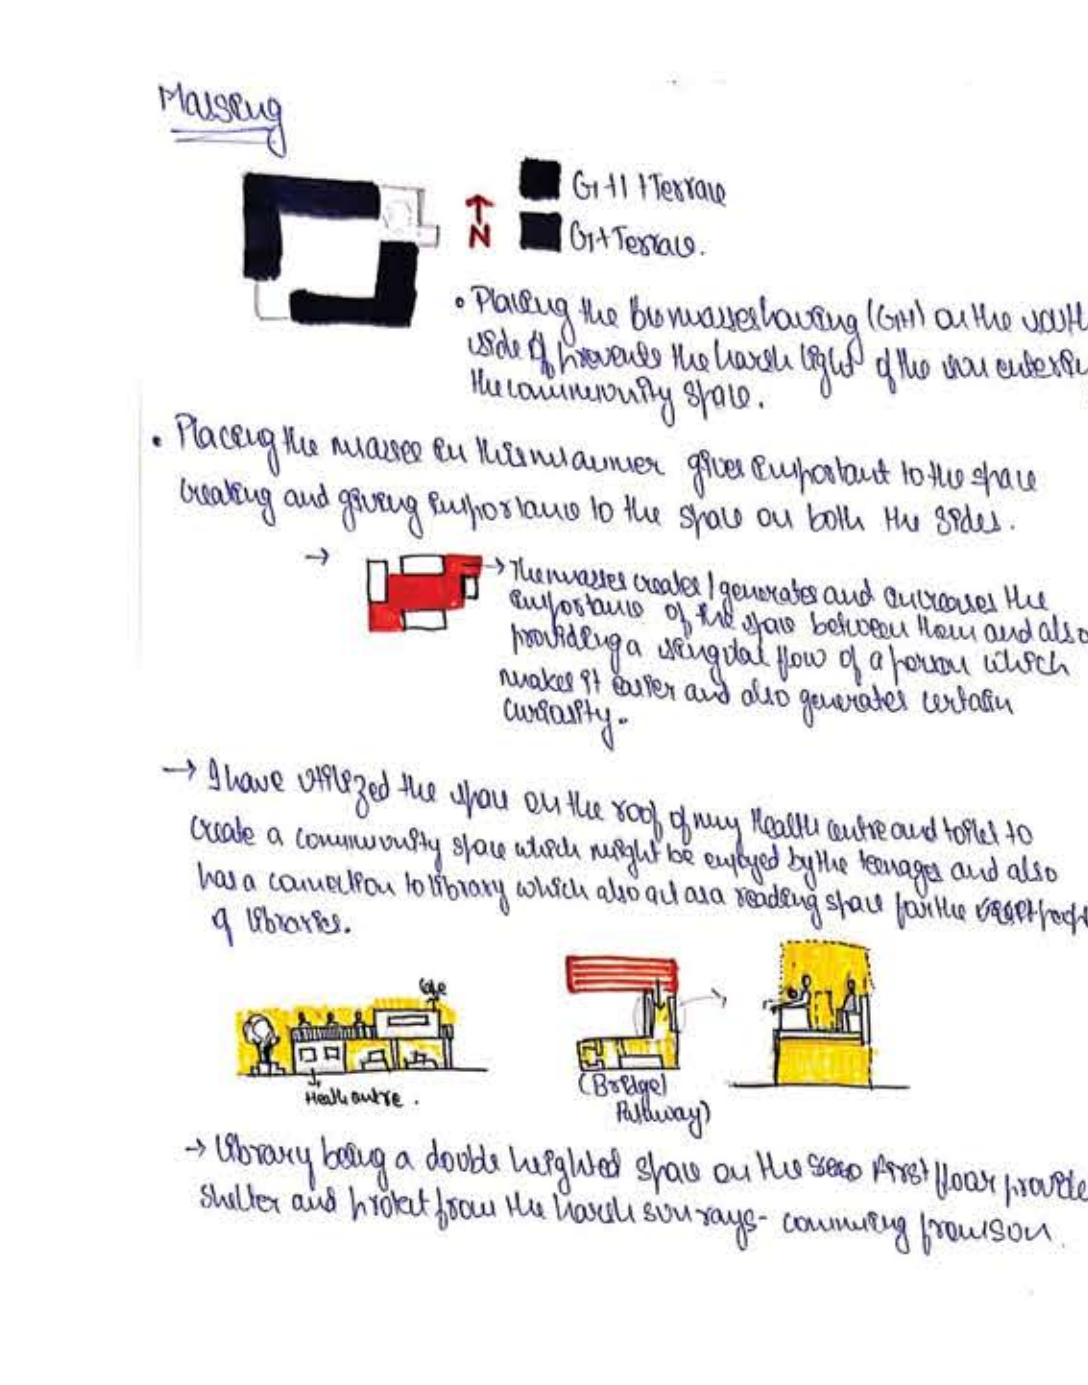 Massing
G+1+Terrace
N
G+Terrace.
• Placing the masses having (G+1) on the south
side prevents the harsh light of the sun enterin
the community space.
• Placing the masses in this manner gives important to the space
creating and giving importance to the space on both the sides.
→ → The masses creates / generates and increases the
importance of the space between them and also
providing a singular flow of a person which
makes it easier and also generates certain
curiosity.
→ I have utilized the space on the roof of my Health centre and toilet to
create a community space which might be enjoyed by the teenages and also
has a connection to library which also act as a reading space for the
of libraries.
Cafe
Health centre.
(Bridge/
Pathway)
→ library being a double heighted space on the first floor provide
shelter and protect from the harsh sun rays - comming from sun.